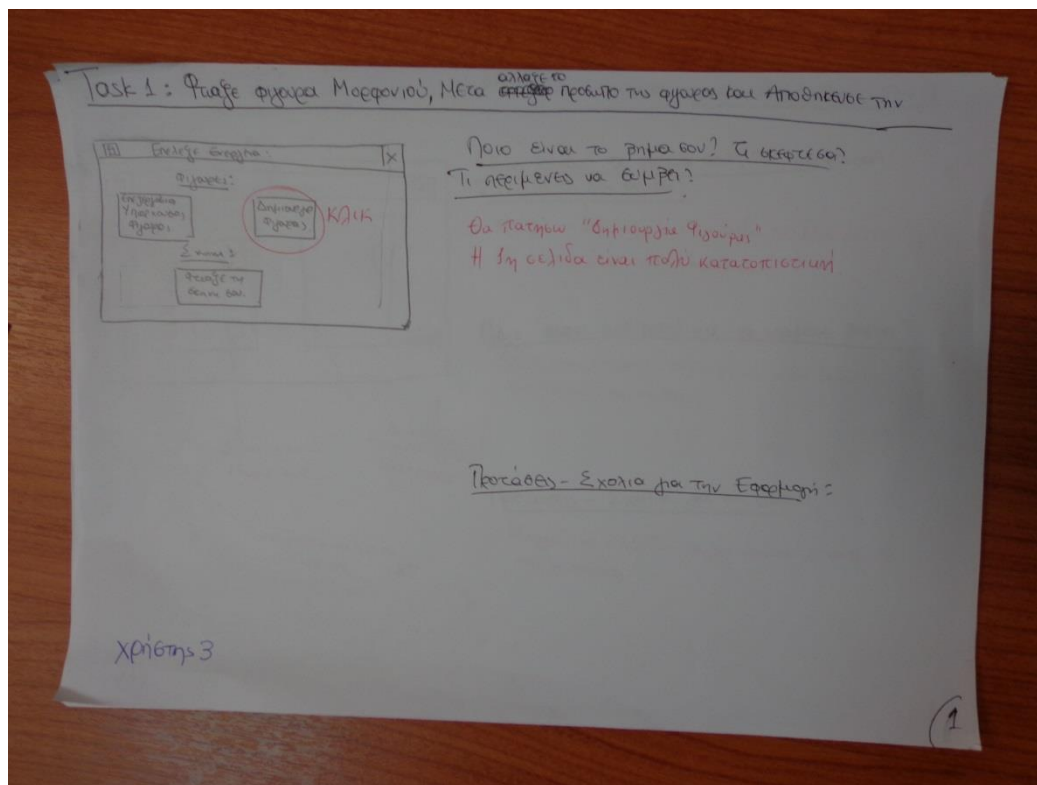 Task 1: Φτιαξε φιγουρα Μορφονιού, Μετα αλλαξε το προσωπο της φιγουρας και Αποθηκευσε την
Επελεξε ενεργεια:
X
Φιγουρες:
Επεξεργασια
Υπαρχουσας
Φιγουρας
Δημιουργια
Φιγουρας
ΚΛΙΚ
Σκηνες
Φτιαξε τη
σκηνη σου
Ποιο είναι το βημα σου? Τι σκεφτεσαι?
Τι περιμενες να συμβει?
Θα πατησω "Δημιουργία Φιγούρας"
Η 1η σελιδα είναι πολύ κατατοπιστική
Προτάσεις - Σχολια για την Εφαρμογή:
Χρήστης 3
1